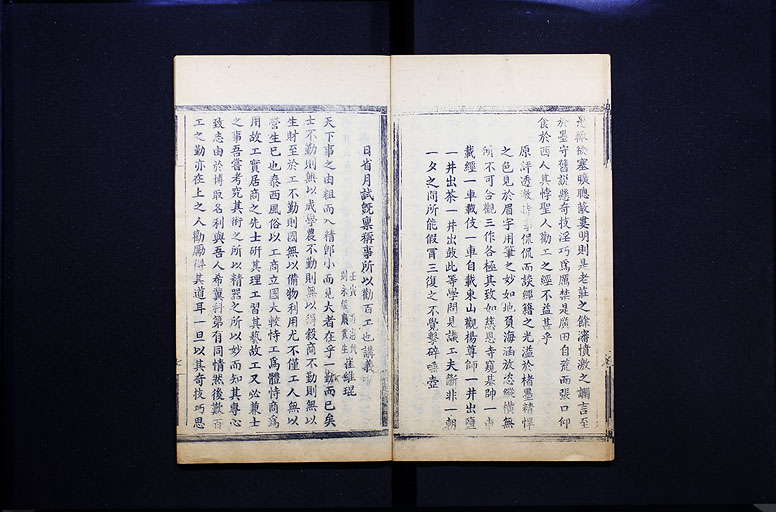 是猶欲塞曠聰蔽婁明則是老莊之餘瀋憤激之讕言至
於墨守舊說懸奇技淫巧爲厲禁是廣田自荒而張口仰
食於西人其悖聖人勸工之經不益甚乎
原評透澈時事侃侃而談經籍之光溢於楮墨精悍
之色見於眉宇用筆之妙如地負海涵放恣縱橫無
不可合觀三作各極其致如慈恩寺窺基師一車
載經一車載伎一車自載東山觀楊尊師一井出鹽
一井出茶一井出豉此等學問見識工夫斷非一朝
一夕之間所能假冒三復之不覺擊碎唾壺
日省月試既稟稱事所以勸百工也講義
崔維琨
天下事之由粗而入精即小而見大者在乎一勤而已矣
士不勤則無以成學農不勤則無以得穀商不勤則無以
生財至於工不勤則國無以備物利用尤不僅工人無以
營生已也泰西風俗以工商立國大較恃工爲體恃商爲
用故工實居商之先士研其理工習其藝故工又必兼士
之事吾嘗考究其術之所以精器之所以妙而知其專心
致志由於博取名利與吾人希冀科第有同情然後歎百
工之勤亦在上之人勸厲得其道耳一旦以其奇技巧思